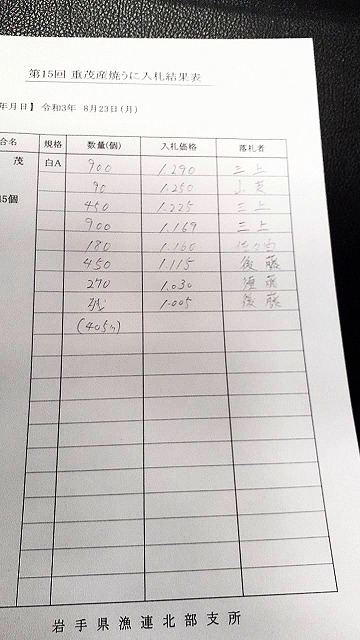 第15回 重茂産焼うに入札結果表
年月日】 令和3年 8月23日(月)
合名 規格 数量(個) 入札価格 落札者
茂 白A 900 1.290 三上
90 1.250
45個 450 1.225 三上
900 1.169 三上
180 1.160 佐々由
450 1.115 後藤
270 1.030 後藤
残 1.005 後藤
(405ケ)
岩手県漁連北部支所